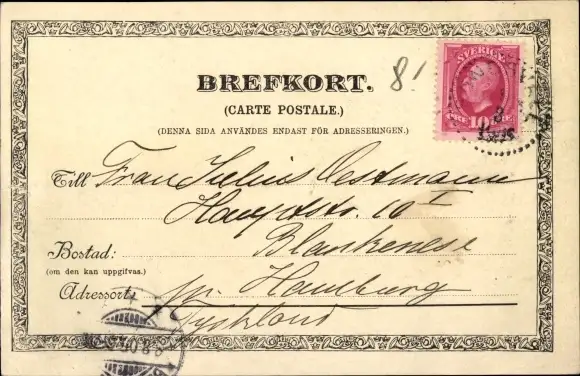 BREFKORT.
8!
(CARTE POSTALE.)
(DENNA SIDA ANVÄNDES ENDAST FÖR ADRESSERINGEN.)
SVERIGE
ÖRE 10 ÖRE
Till Frau Julius Oestmann
Hauptstr. 10 I
Bostad: Blankenese
(om den kan uppgifvas.)
Adressort: pr. Hamburg
Tyskland